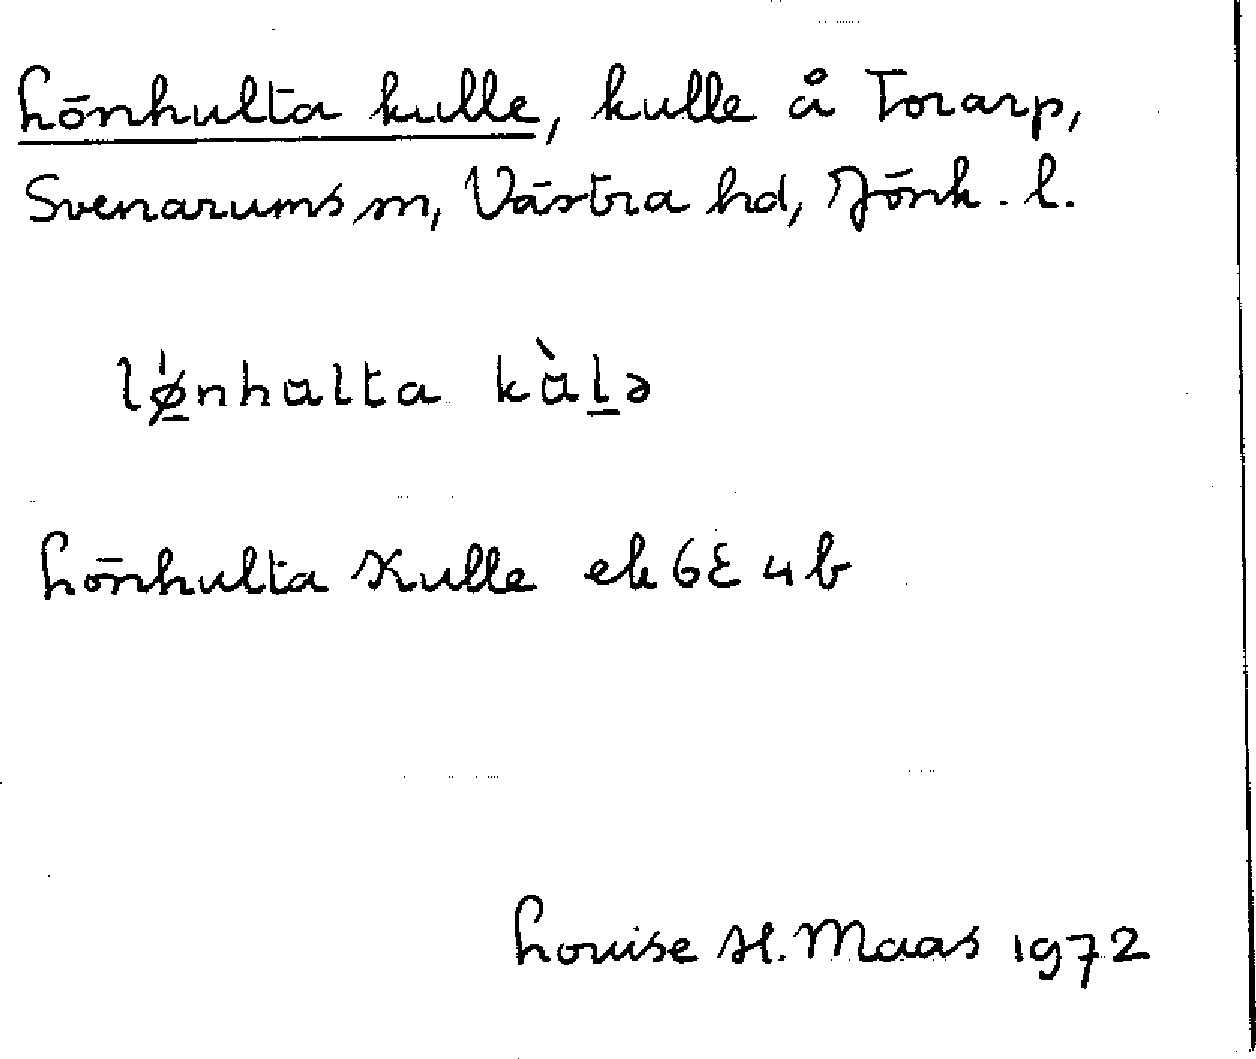 Lönhulta kulle, kulle å Torarp,
Svenarums sn, Västra hd, Jönk. l.
lǿ̲nhulta kùl̲ə
Lönhulta Kulle ek 6E 4b
Louise H. Maas 1972